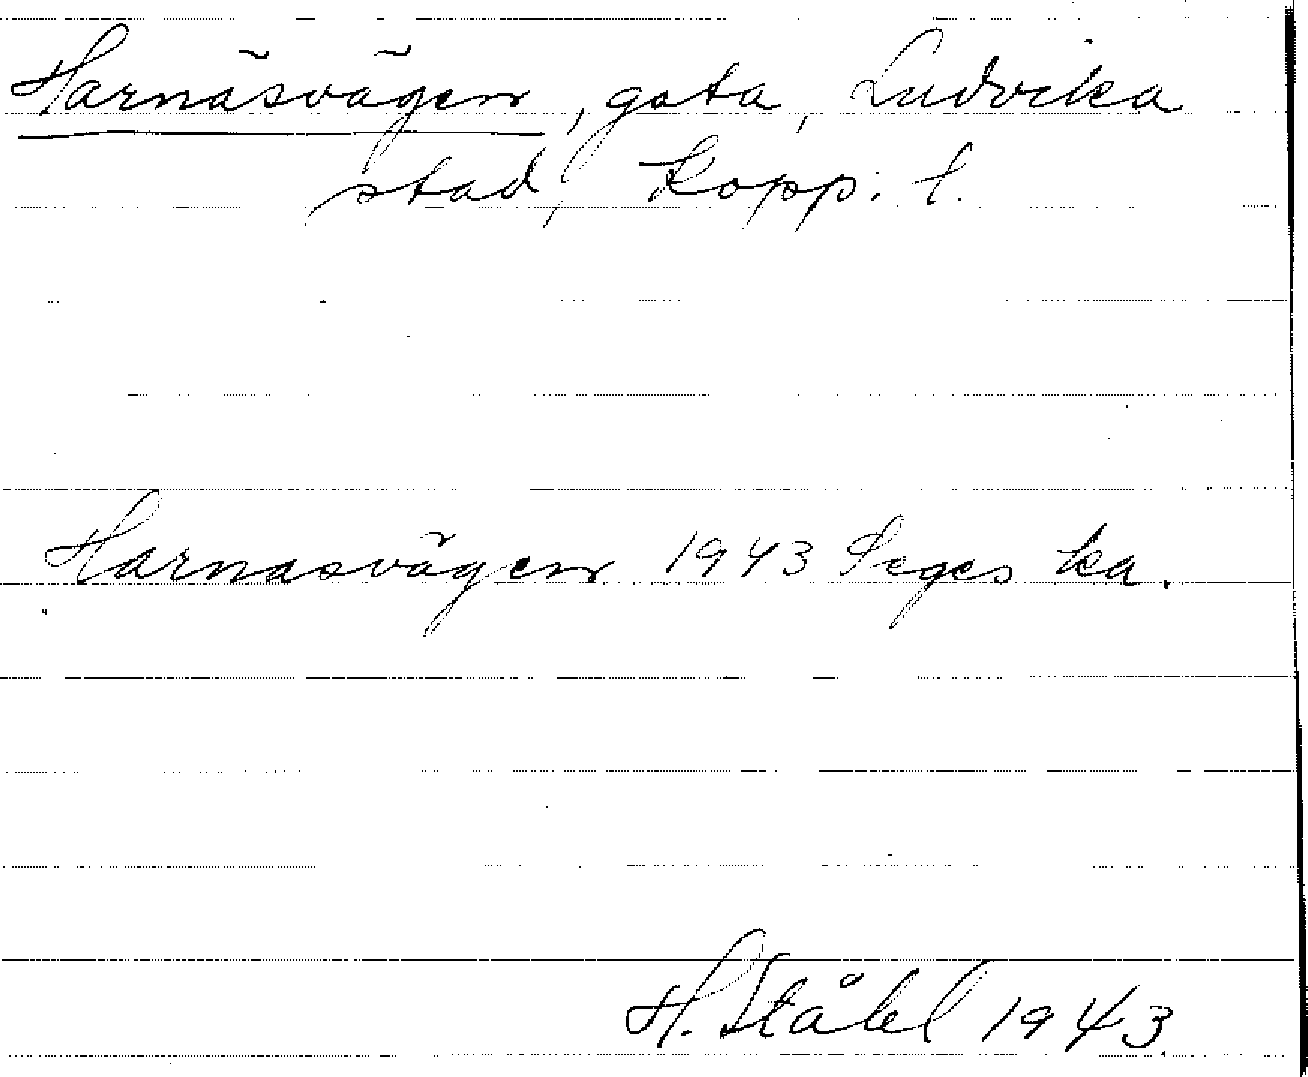 Harnäsvägen, gata, Ludvika
stad, Kopp. l.
Harnasvägen 1943 Seges ka.
H. Ståhl 1943